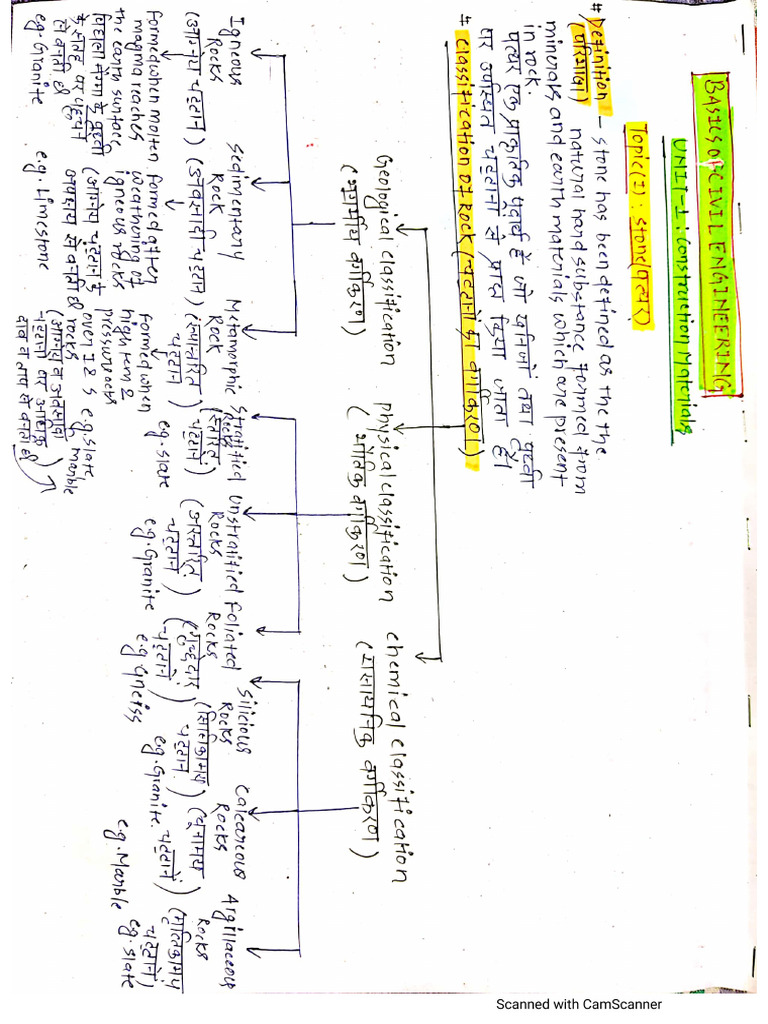 BASICS OF CIVIL ENGINEERING
UNIT-1 : Construction Materials
Topic(1) : Stone(पत्थर)
# Definition - Stone has been defined as the the
(परिभाषा) natural hand substance formed from
minerals and earth materials which are present
in rock.
पत्थर एक प्राकृतिक पदार्थ है जो खनिजों तथा पृथ्वी
पर उपस्थित चट्टानों से प्राप्त किया जाता है।
# Classification of Rock (चट्टानों का वर्गीकरण)
Geological classification
(भूगर्भीय वर्गीकरण)
Physical classification
(भौतिक वर्गीकरण)
Chemical classification
(रासायनिक वर्गीकरण)
Igneous
Rocks
(आग्नेय चट्टान)
formed when molten
magma reaches
the earth surface
पिघला मैग्मा है पृथ्वी
के सतह पर पहुंचने
से बनती है
e.g. Granite
Sedimentary
Rock
(अवसादी चट्टान)
formed after
weathering of
igneous rocks
(आग्नेय चट्टान के
अपक्षय से बनती है)
e.g. Limestone
Metamorphic
Rock
(रूपांतरित
चट्टान)
formed when
high tem &
pressure acts
over I & S
rocks
e.g. Slate
Marble
Stratified
Rocks
(स्तरित
चट्टानें)
e.g. Slate
Unstratified
Rocks
(अस्तरित
चट्टान)
e.g. Granite
Foliated
Rocks
चट्टानें)
e.g Gneiss
Silicious
Rocks
(सिलिकामय
चट्टान)
e.g. Granite
Calcareous
Rocks
(चूनामय
चट्टानें)
e.g. Marble
Argillaceous
Rocks
(मृतिकामय
चट्टानें)
e.g. Slate
Scanned with CamScanner